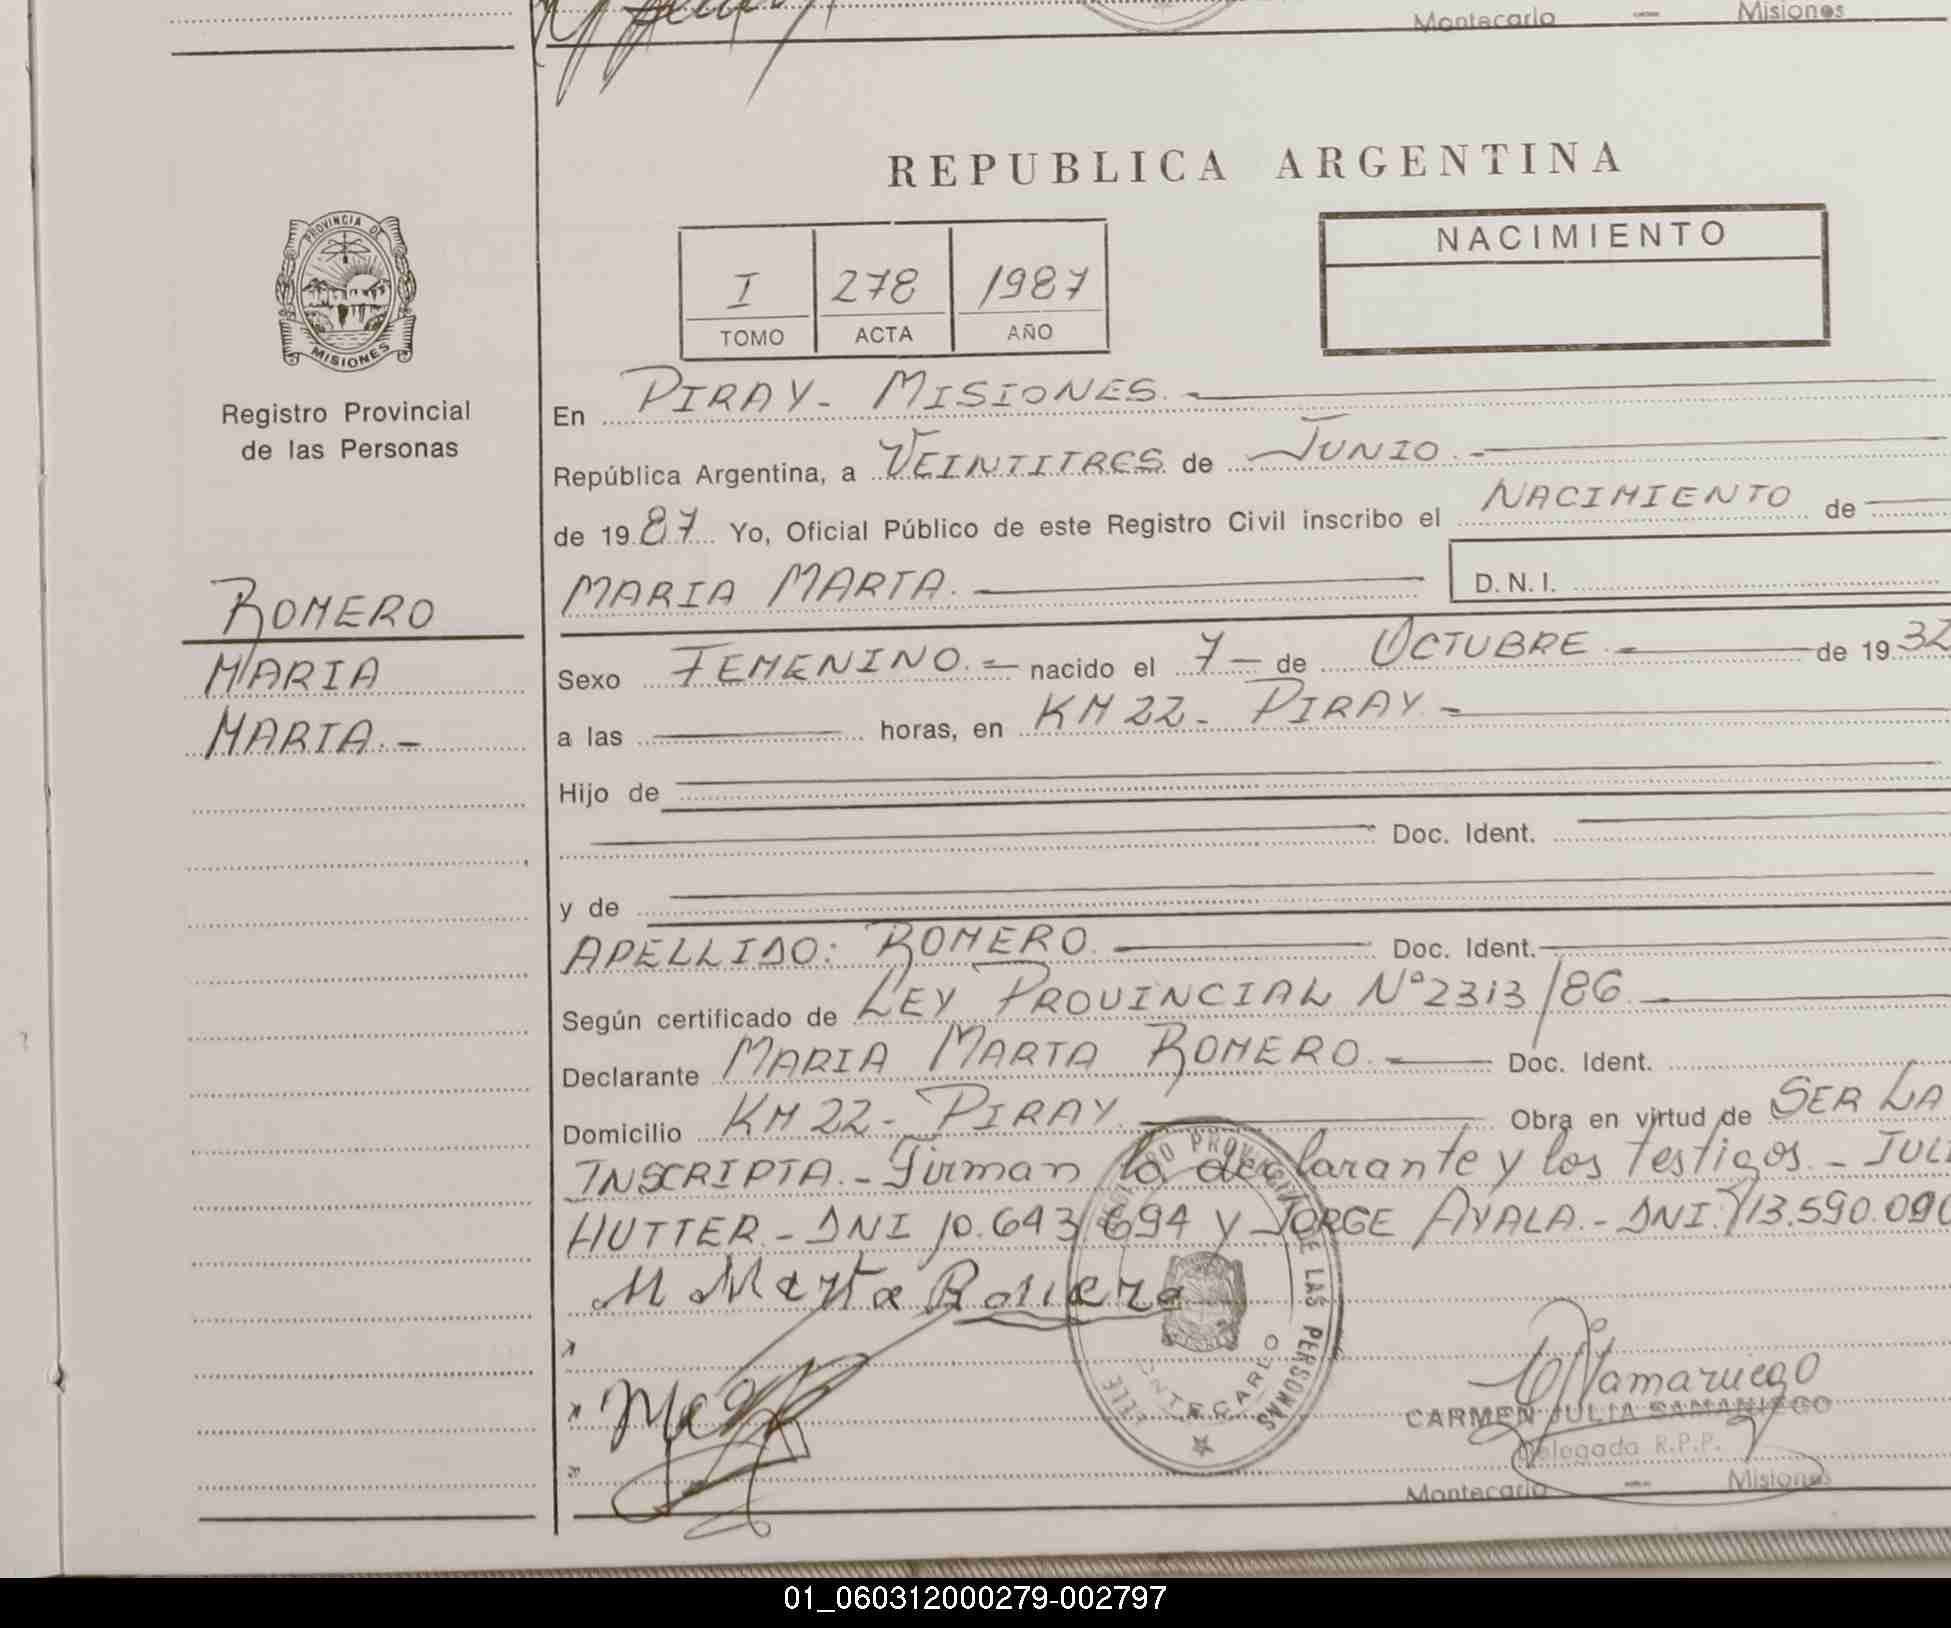 Montecarlo — Misiones
REPUBLICA ARGENTINA
PROVINCIA DE
MISIONES
NACIMIENTO
I 278 1987
TOMO ACTA AÑO
Registro Provincial
de las Personas
En PIRAY - MISIONES. -
República Argentina, a VEINTITRES de JUNIO. -
de 19 87 Yo, Oficial Público de este Registro Civil inscribo el NACIMIENTO de
MARIA MARTA. D.N.I.
ROMERO
MARIA
MARTA. -
Sexo FEMENINO. - nacido el 7 - de OCTUBRE de 19 32
a las horas, en KM 22 - PIRAY -
Hijo de
Doc. Ident.
y de
APELLIDO: ROMERO. Doc. Ident.
Según certificado de LEY PROVINCIAL Nº 2313/86
Declarante MARIA MARTA ROMERO. Doc. Ident.
Domicilio KM 22 - PIRAY. Obra en virtud de SER LA
INSCRIPTA. - Firman la declarante y los testigos. - JULI
HUTTER. - DNI 10.643.694 y JORGE AYALA. - DNI. 13.590.090
M Marta Romero
REGISTRO PROVINCIAL DE LAS PERSONAS
MONTECARLO
CARMEN JULIA SAMANIEGO
Delegada R.P.P.
Montecarlo — Misiones
01_060312000279-002797